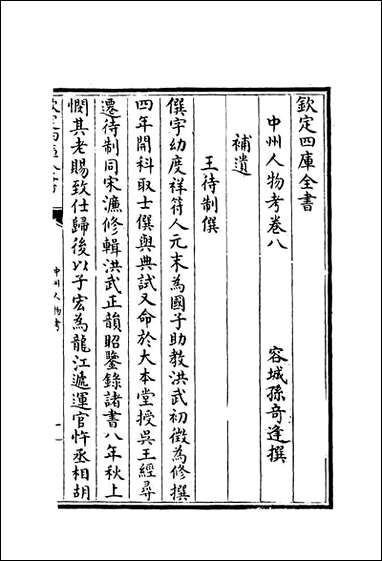 欽定四庫全書
中州人物考卷八
容城孫竒逢撰
補遺
王待制僎
僎字幼度祥符人元末為國子助教洪武初徵為修撰
四年開科取士僎與典試又命於大本堂授吴王經尋
遷待制同宋濂修輯洪武正韻昭鑒錄諸書八年秋上
憫其老賜致仕歸後以子宏為龍江遞運官忤丞相胡
欽定四庫全書
中州人物考
一